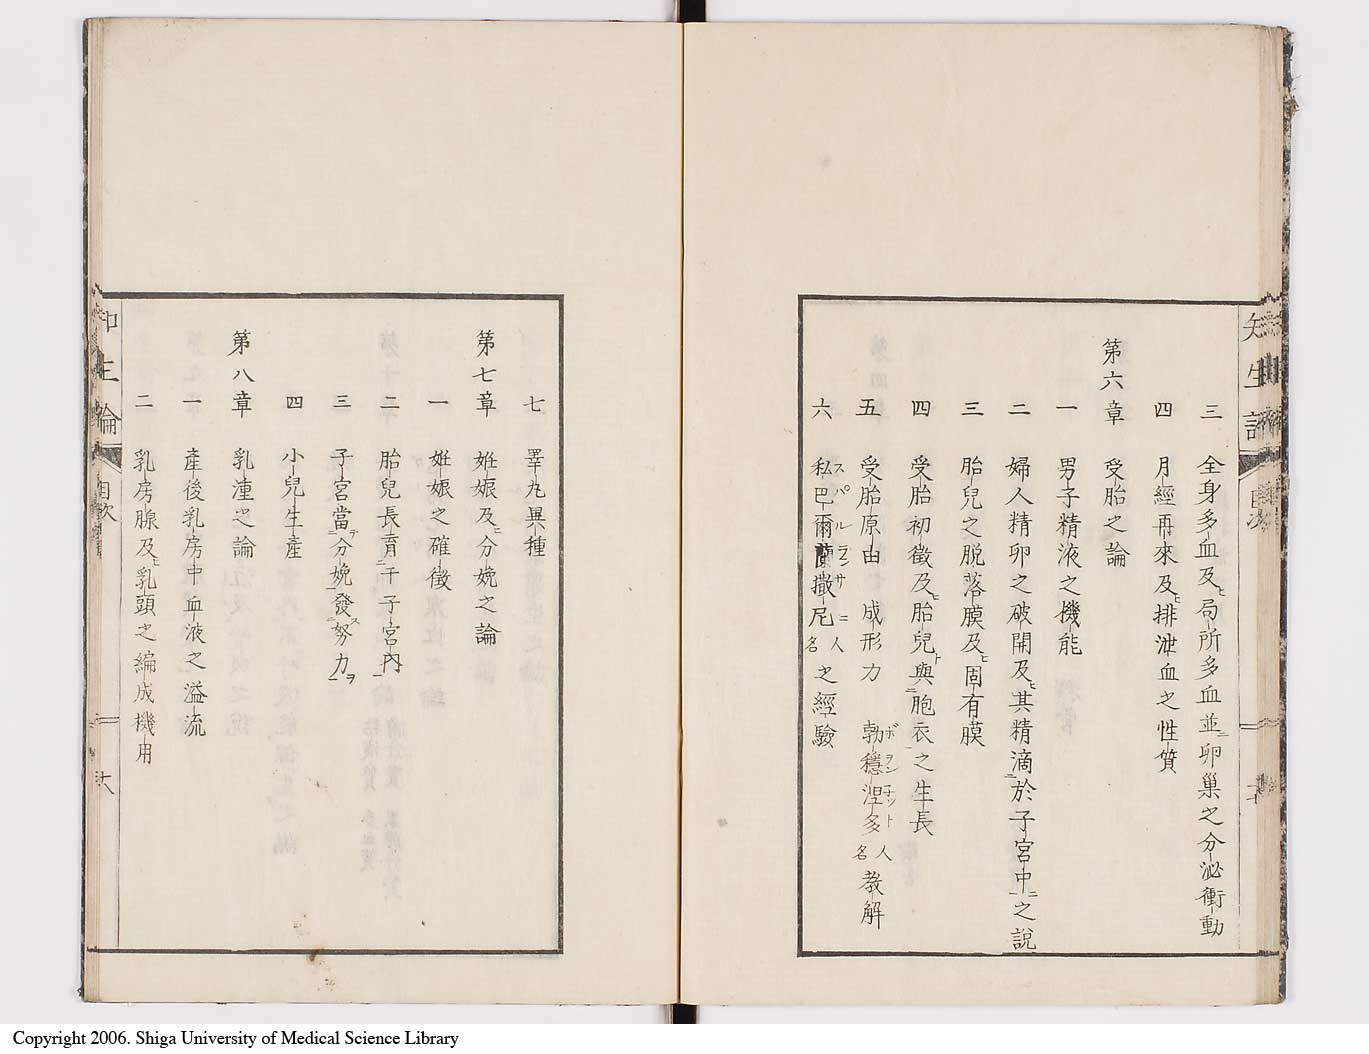 三 全身多血及ヒ局所多血並ニ卵巢之分泌衝動
四 月經再來及ヒ排泄血之性質
第六章 受胎之論
一 男子精液之機能
二 婦人精卵之破開及ヒ其精滴ニ於子宮中ニ之說
三 胎兒之脱落膜及ヒ固有膜
四 受胎初徵及ヒ胎兒ト與ニ胞衣之生長
五 受胎原由 成形力 勃穩涅多人名敎解
ボヲンチット
六 私巴爾蘭撒尼人名之經驗
スパルランサニ
知生論 目次
七 睪丸異種
第七章 姙娠及ヒ分娩之論
一 姙娠之確徵
二 胎兒長育ニ于子宮內
三 子宮當テニ分娩ニ發ス努力ヲ
四 小兒生產
第八章 乳湩之論
一 產後乳房中血液之溢流
二 乳房腺及ヒ乳頭之編成機用
知生論 目次 八
Copyright 2006. Shiga University of Medical Science Library